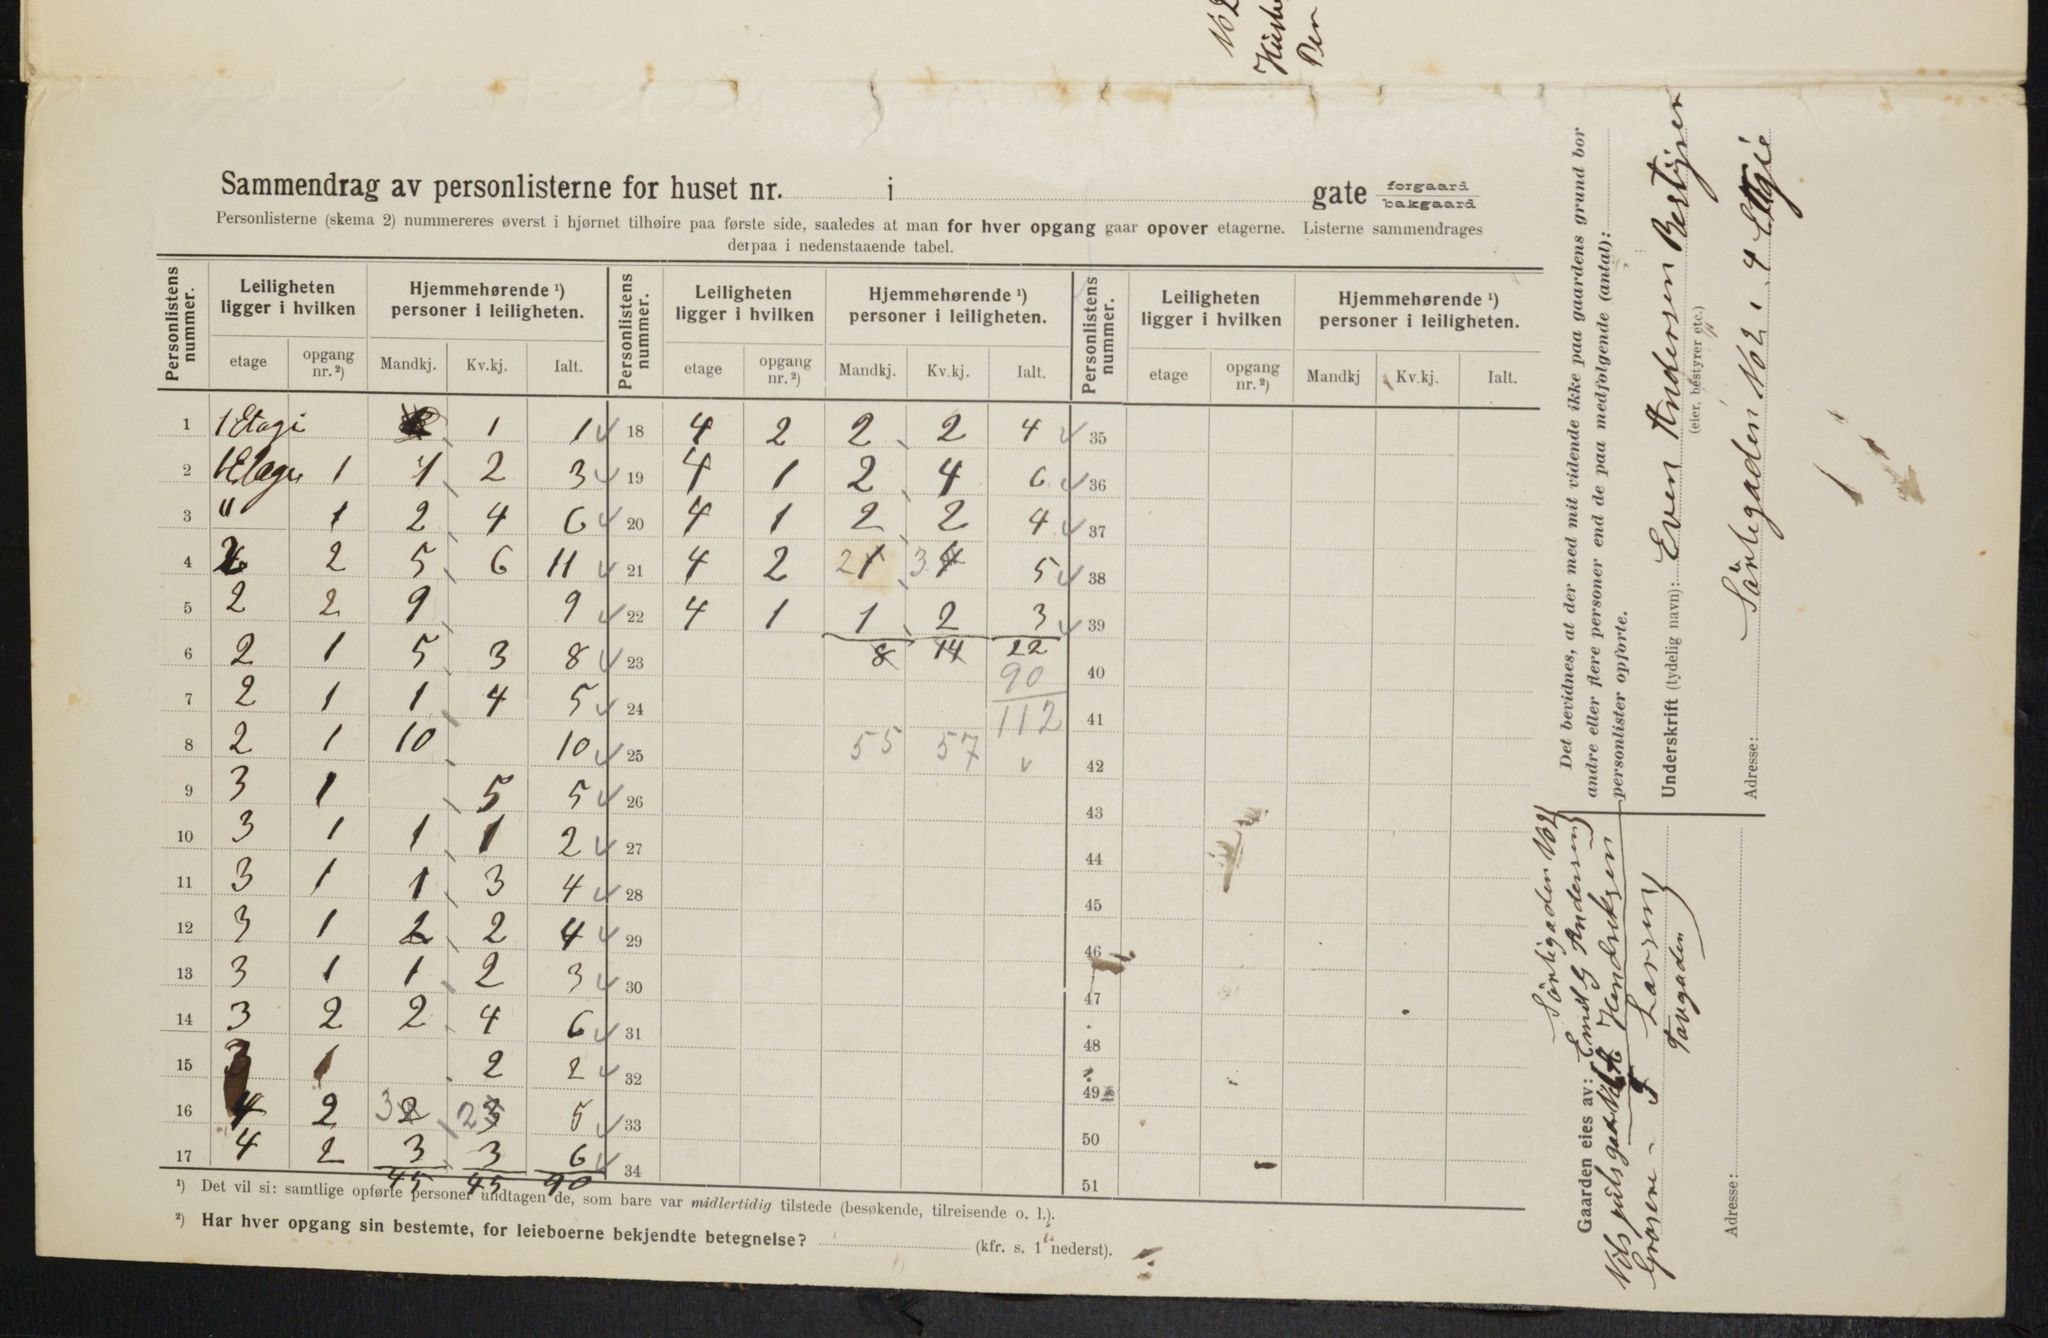 No 2
Sammendrag av personlisterne for huset nr. i gate forgaard bakgaard
Personlisterne (skema 2) nummereres øverst i hjørnet tilhøire paa første side, saaledes at man for hver opgang gaar opover etagerne. Listerne sammendrages
derpaa i nedenstaaende tabel.
Personlistens nummer. Leiligheten ligger i hvilken Hjemmehørende ¹) personer i leiligheten. Personlistens nummer. Leiligheten ligger i hvilken Hjemmehørende ¹) personer i leiligheten. Personlistens nummer. Leiligheten ligger i hvilken Hjemmehørende ¹) personer i leiligheten.
etage opgang nr. ²) Mandkj. Kv.kj. Ialt. etage opgang nr. ²) Mandkj. Kv.kj. Ialt. etage opgang nr. ²) Mandkj Kv.kj. Ialt.
1 1 Etagi 1 1 ✓ 18 4 2 2 2 4 ✓ 35
2 1 Etage 1 1 2 3 ✓ 19 4 1 2 4 6 ✓ 36
3 " 1 2 4 6 ✓ 20 4 1 2 2 4 ✓ 37
4 2 2 5 6 11 ✓ 21 4 2 2 1 3 4 5 ✓ 38
5 2 2 9 9 ✓ 22 4 1 1 2 3 ✓ 39
6 2 1 5 3 8 ✓ 23 8 14 22 40
7 2 1 1 4 5 ✓ 24 90 41
8 2 1 10 10 ✓ 25 55 57 112 ✓ 42
9 3 1 5 5 ✓ 26 43
10 3 1 1 1 2 ✓ 27 44
11 3 1 1 3 4 ✓ 28 45
12 3 1 2 2 4 ✓ 29 46
13 3 1 1 2 3 ✓ 30 47
14 3 2 2 4 6 ✓ 31 48
15 3 1 2 2 ✓ 32 49
16 4 2 3 2 2 3 5 ✓ 33 50
17 4 2 3 3 6 ✓ 34 51
45 45 90
¹) Det vil si: samtlige opførte personer undtagen de, som bare var midlertidig tilstede (besøkende, tilreisende o. l.).
²) Har hver opgang sin bestemte, for leieboerne bekjendte betegnelse? (kfr. s. 1 nederst).
Det bevidnes, at der med mit vidende ikke paa gaardens grund bor
andre eller flere personer end de paa medfølgende (antal):
personlister opførte.
Underskrift (tydelig navn): Even Andersen Bestyrer
(eier, bestyrer etc.)
Adresse: Sörligaden No 2. 4 Etagie
Sörligaden No 2
Gaarden eies av: Emel G Andersen
Hendreksen
Larsen
Tøvgaden
Adresse: